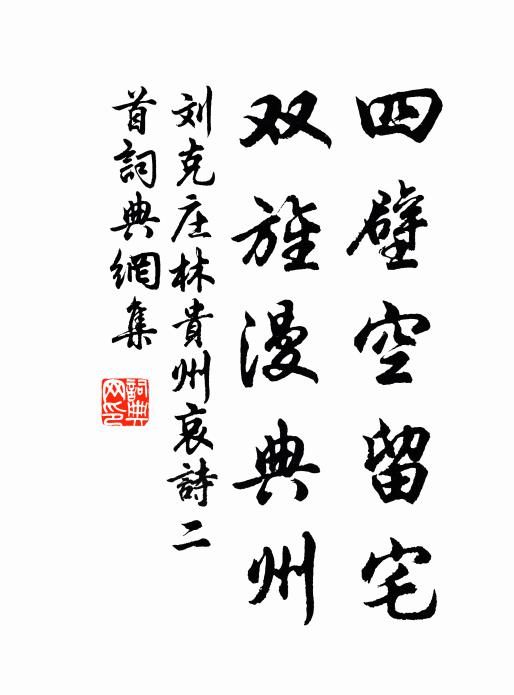 四壁空留宅
双旌漫典州
刘克庄林貴州哀詩二
首詞典網集
詞典
网印